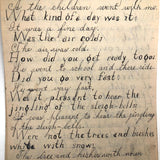 If the children went with me.
What kind of a day was it?
It was a fine day.
Was the air cold?
The air was cold.
How did you get ready to go?
We went to school and there ride
did you go very fast?
We went very fast.
Was it pleasant to hear the
jingling of the sleigh-bells?
It was pleasant to hear the jingling
of the sleigh-bells.
Were not the trees and bushes
white with snow?
The trees and bushes were